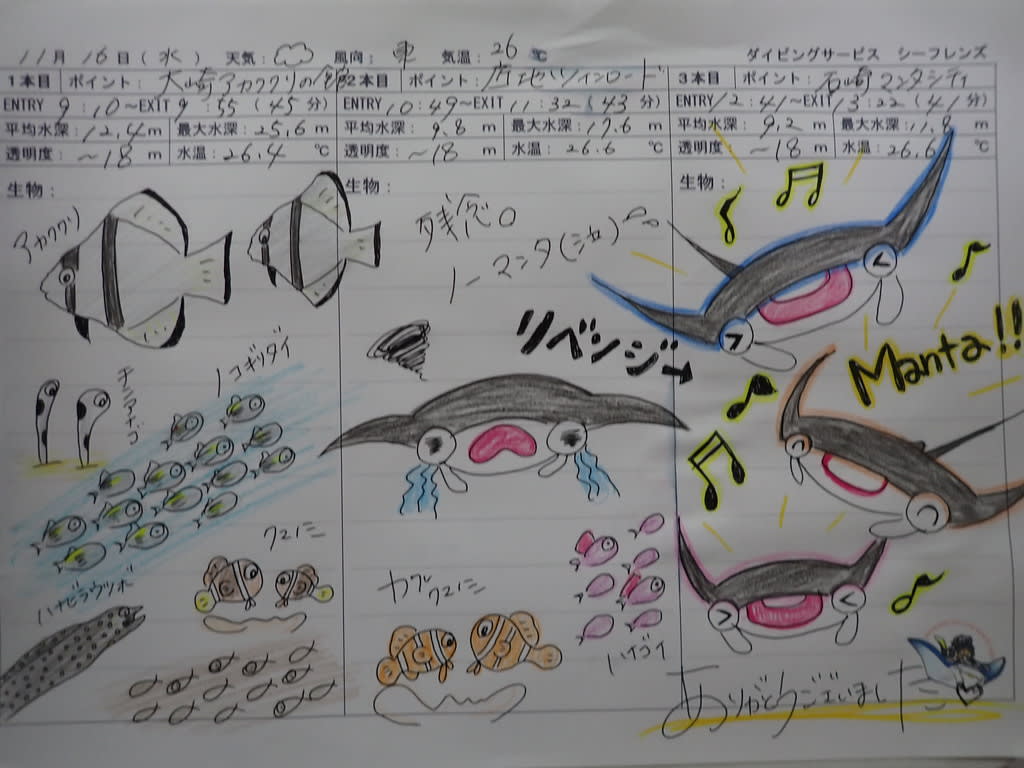 11月16日(水) 天気: 風向: 東 気温: 26℃ ダイビングサービス シーフレンズ
1本目 ポイント: 大崎アカククリの館
ENTRY 9:10~EXIT 9:55(45分)
平均水深: 12.4m 最大水深: 25.6m
透明度: ~18m 水温: 26.4℃
生物:
アカククリ
チンアナゴ
ノコギリダイ
クマノミ
ハナビラウツボ
2本目 ポイント:
ENTRY 10:49~EXIT 11:32(43分)
平均水深: 9.8m 最大水深: 17.6m
透明度: ~18m 水温: 26.6℃
生物:
残念。
ノーマンタ(泣)
リベンジ→
カクレクマノミ
3本目 ポイント: 石崎マンタシティ
ENTRY 12:41~EXIT 13:22(41分)
平均水深: 9.2m 最大水深: 11.8m
透明度: ~18m 水温: 26.6℃
生物:
Manta!!
ありがとうございました